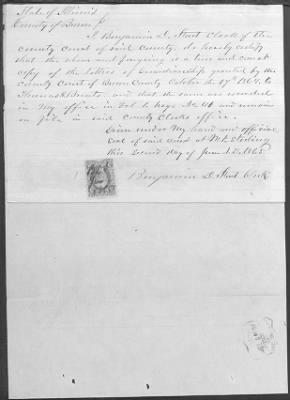 State of Illinois
County of Brown
I, Benjamin D. Stout Clerk of the
county court of said County, do hereby certify
that the above and foregoing is a true and correct
copy of the letters of Guardianship granted by the
County Court of Brown County October the 17th 1864, to
and that the same are recorded
in my office in Vol. page No. 41 and remain
on file in said county Clerks office.
Given under my hand and official
Seal of said court at Mt. Sterling
this second day of June A.D. 1865
Benjamin D. Stout Clerk